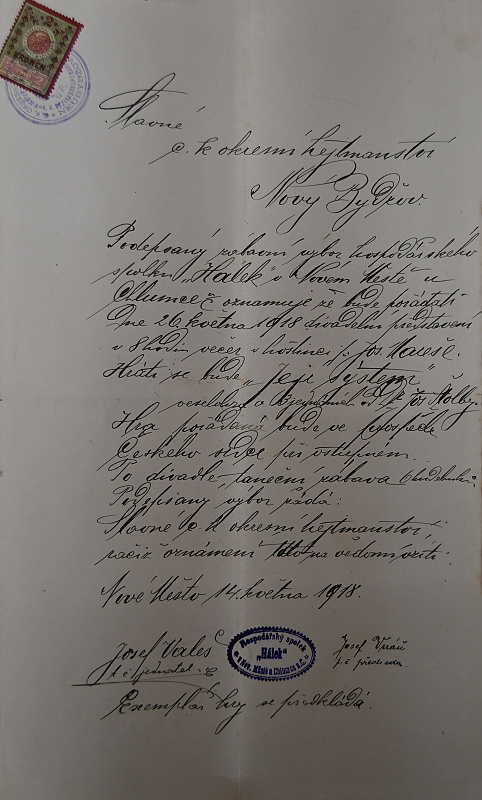 KRONEN
Slavné
c. k. okresní hejtmanství
Nový Bydžov.
Podepsaný zábavní výbor hospodářského
spolku „Hálek" v Novém Městě u
Chlumce č oznamuje že bude pořádati
Dne 26. května 1918 divadelní představení
v 8 hodin večer v hostinci p. Jos. Mareše.
Hráti se bude „Její systém"
veselohra o jednáních od Jos. Štolby.
Hra pořádaná bude ve prospěch
Českého srdce při vstupném.
Po divadle, taneční zábava
Podepsaný výbor žádá:
Slavné c. k. okresní hejtmanství,
račiž oznámení toto na vědomí vzíti.
Nové Město 14. května 1918.
Josef Valeš
t. č. jednatel.
Hospodářský spolek
„Hálek"
v Nov. Městě u Chlumce n. C.
Josef
t. č. předseda.
Exemplář hry se předkládá.